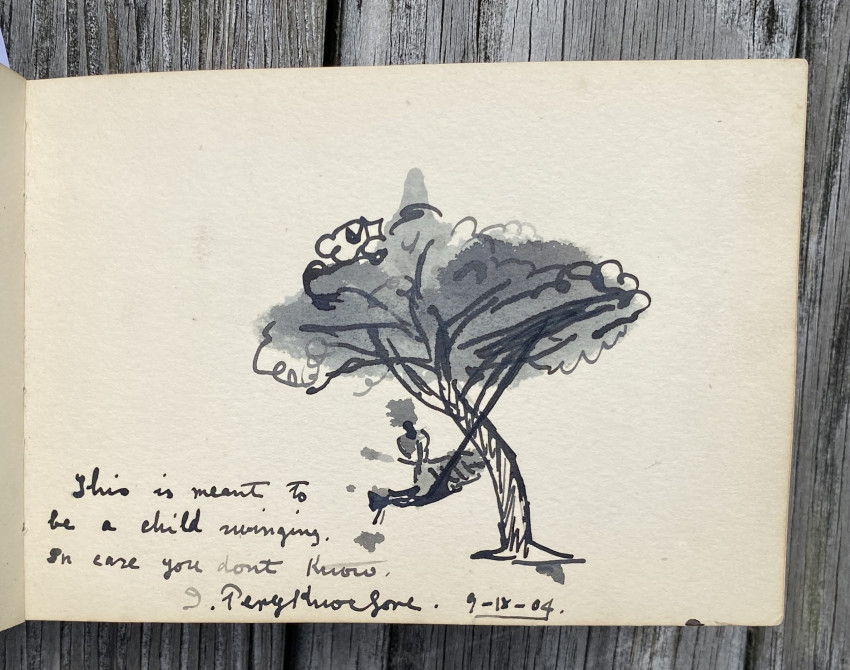 This is meant to
be a child swinging.
In case you dont know.
9-18-04.